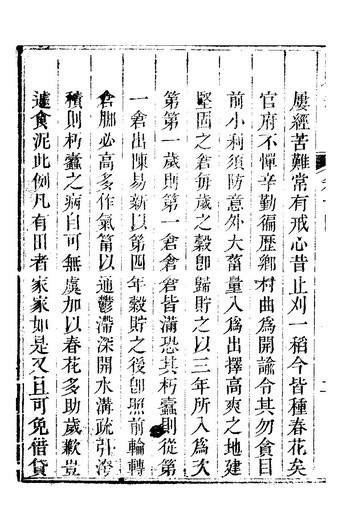 屢經苦難常有戒心昔止刈一稻今皆種春花矣
官府不憚辛勤徧歷鄉村曲爲開諭令其勿貪目
前小利須防意外大菑量入爲出擇高爽之地建
堅固之倉每歲之穀卽歸貯之以三年所入爲次
第第一歲則第一倉倉倉皆滿恐其朽蠹則從第
一倉出陳易新以第四年穀貯之後卽照前輪轉
倉腳必高多作氣筩以通鬱滯深開水溝疏引滂
積則朽蠹之病自可無虞加以春花多助歲歉豈
遽食泥此例凡有田者家家如是又且可免借貸